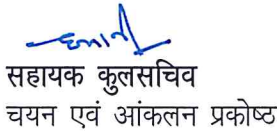 सहायक कुलसचिव
चयन एवं आंकलन प्रकोष्ठ